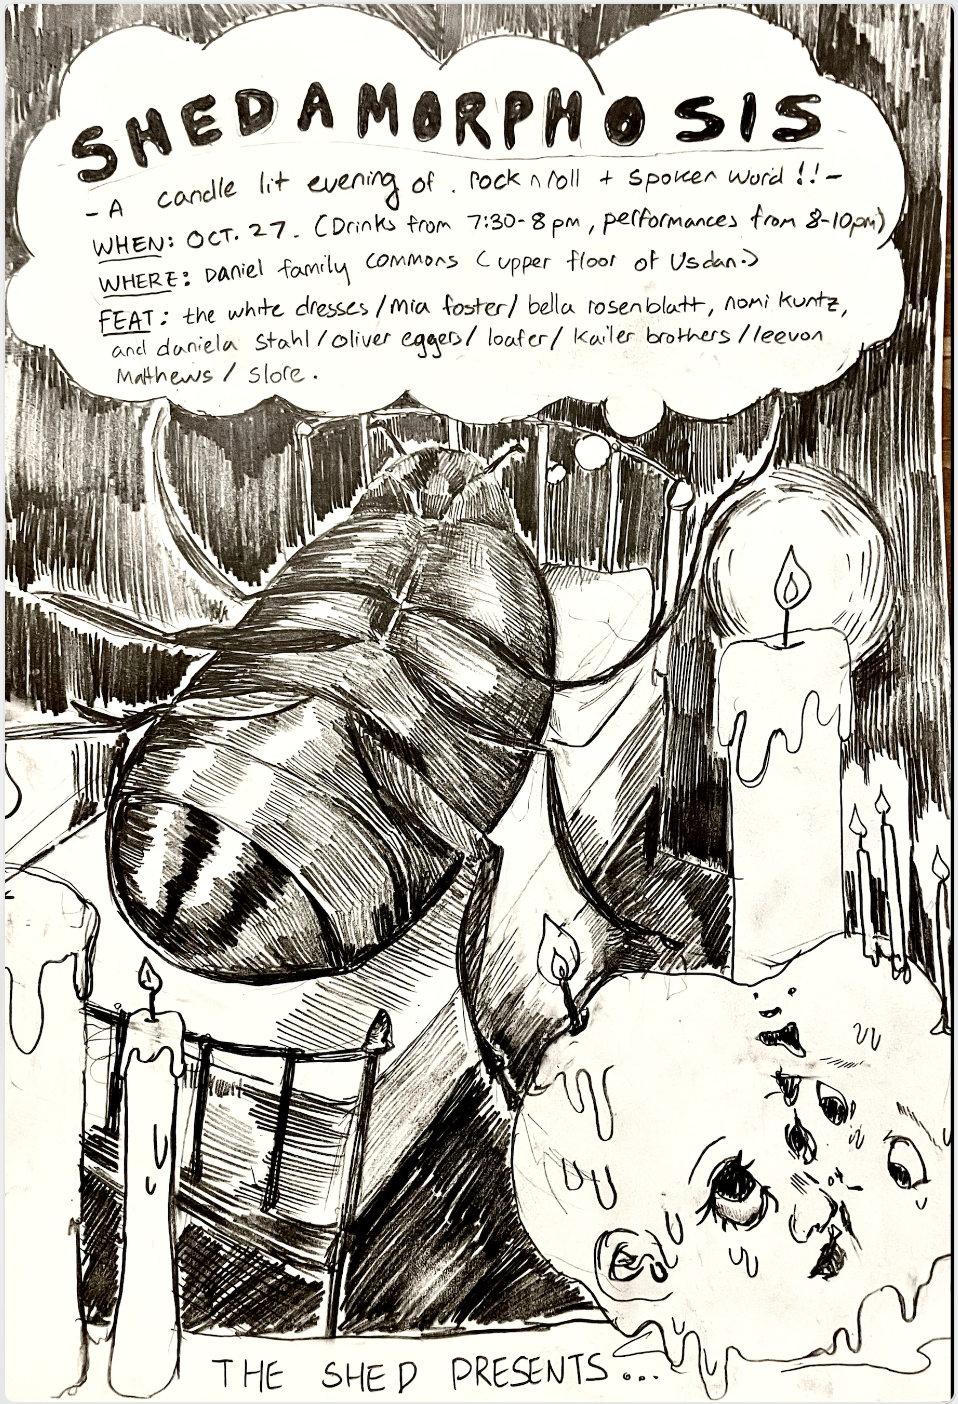 SHEDAMORPHOSIS
- A candle lit evening of . rock n roll + spoken word !! -
WHEN: OCT. 27. (Drinks from 7:30-8pm, performances from 8-10pm)
WHERE: Daniel family commons (upper floor of Usdan.)
FEAT: the white dresses / mia foster / bella rosenblatt, nomi kuntz,
and daniela stahl / oliver eggers / loafer / kailer brothers / leevon
Matthews / slore.
THE SHED PRESENTS...